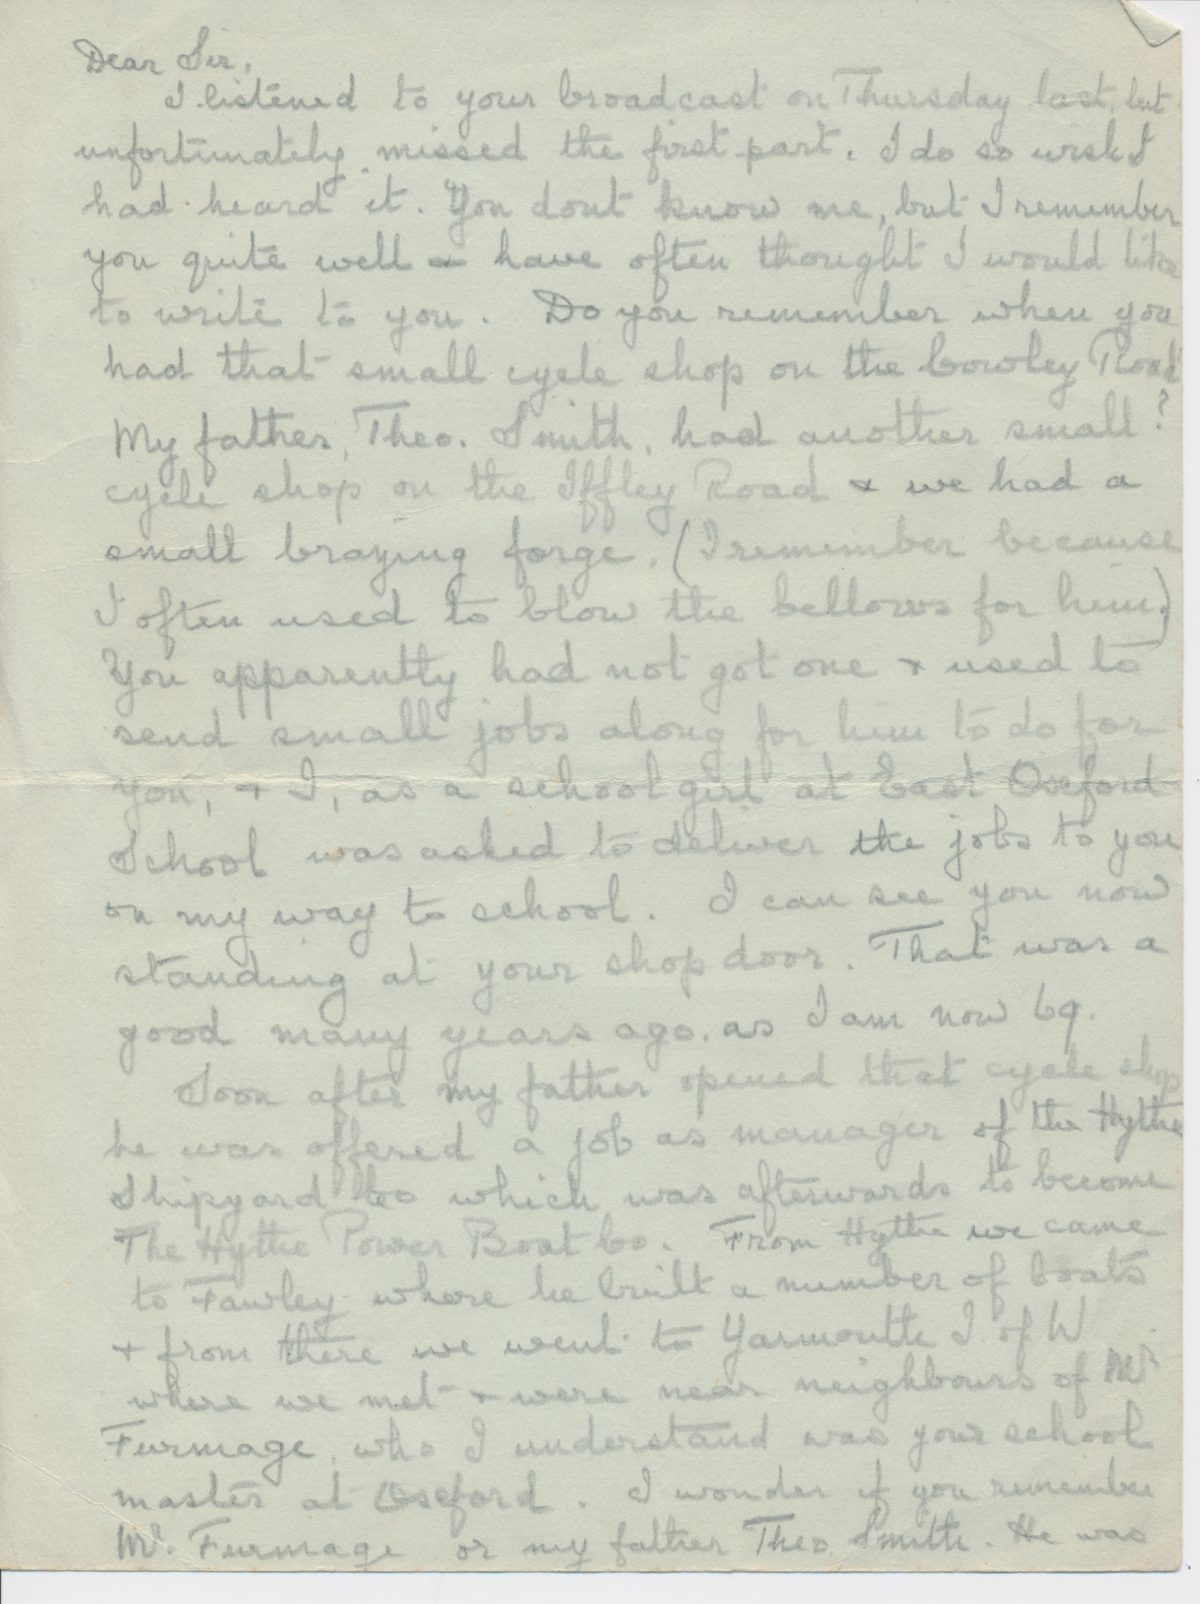 Dear Sir,
I listened to your broadcast on Thursday last, but
unfortunately missed the first part. I do so wish I
had heard it. You dont know me, but I remember
you quite well & have often thought I would like
to write to you. Do you remember when you
had that small cycle shop on the Cowley Road
?
My father, Theo. Smith, had another small
cycle shop on the Iffley Road & we had a
small brazing forge. (I remember because
I often used to blow the bellows for him.)
You apparently had not got one & used to
send small jobs along for him to do for
you, & I, as a school girl at East Oxford
School was asked to deliver the jobs to you
on my way to school. I can see you now
standing at your shop door. That was a
good many years ago. as I am now 69.
Soon after my father opened that cycle shop
he was offered a job as manager of the Hythe
Shipyard Co which was afterwards to become
The Hythe Power Boat Co. From Hythe we came
to Fawley where he built a number of boats
& from there we went to Yarmouth I of W
where we met & were near neighbours of Mr
Furmage, who I understand was your school
master at Oxford. I wonder if you remember
Mr. Furmage or my father Theo. Smith. He was